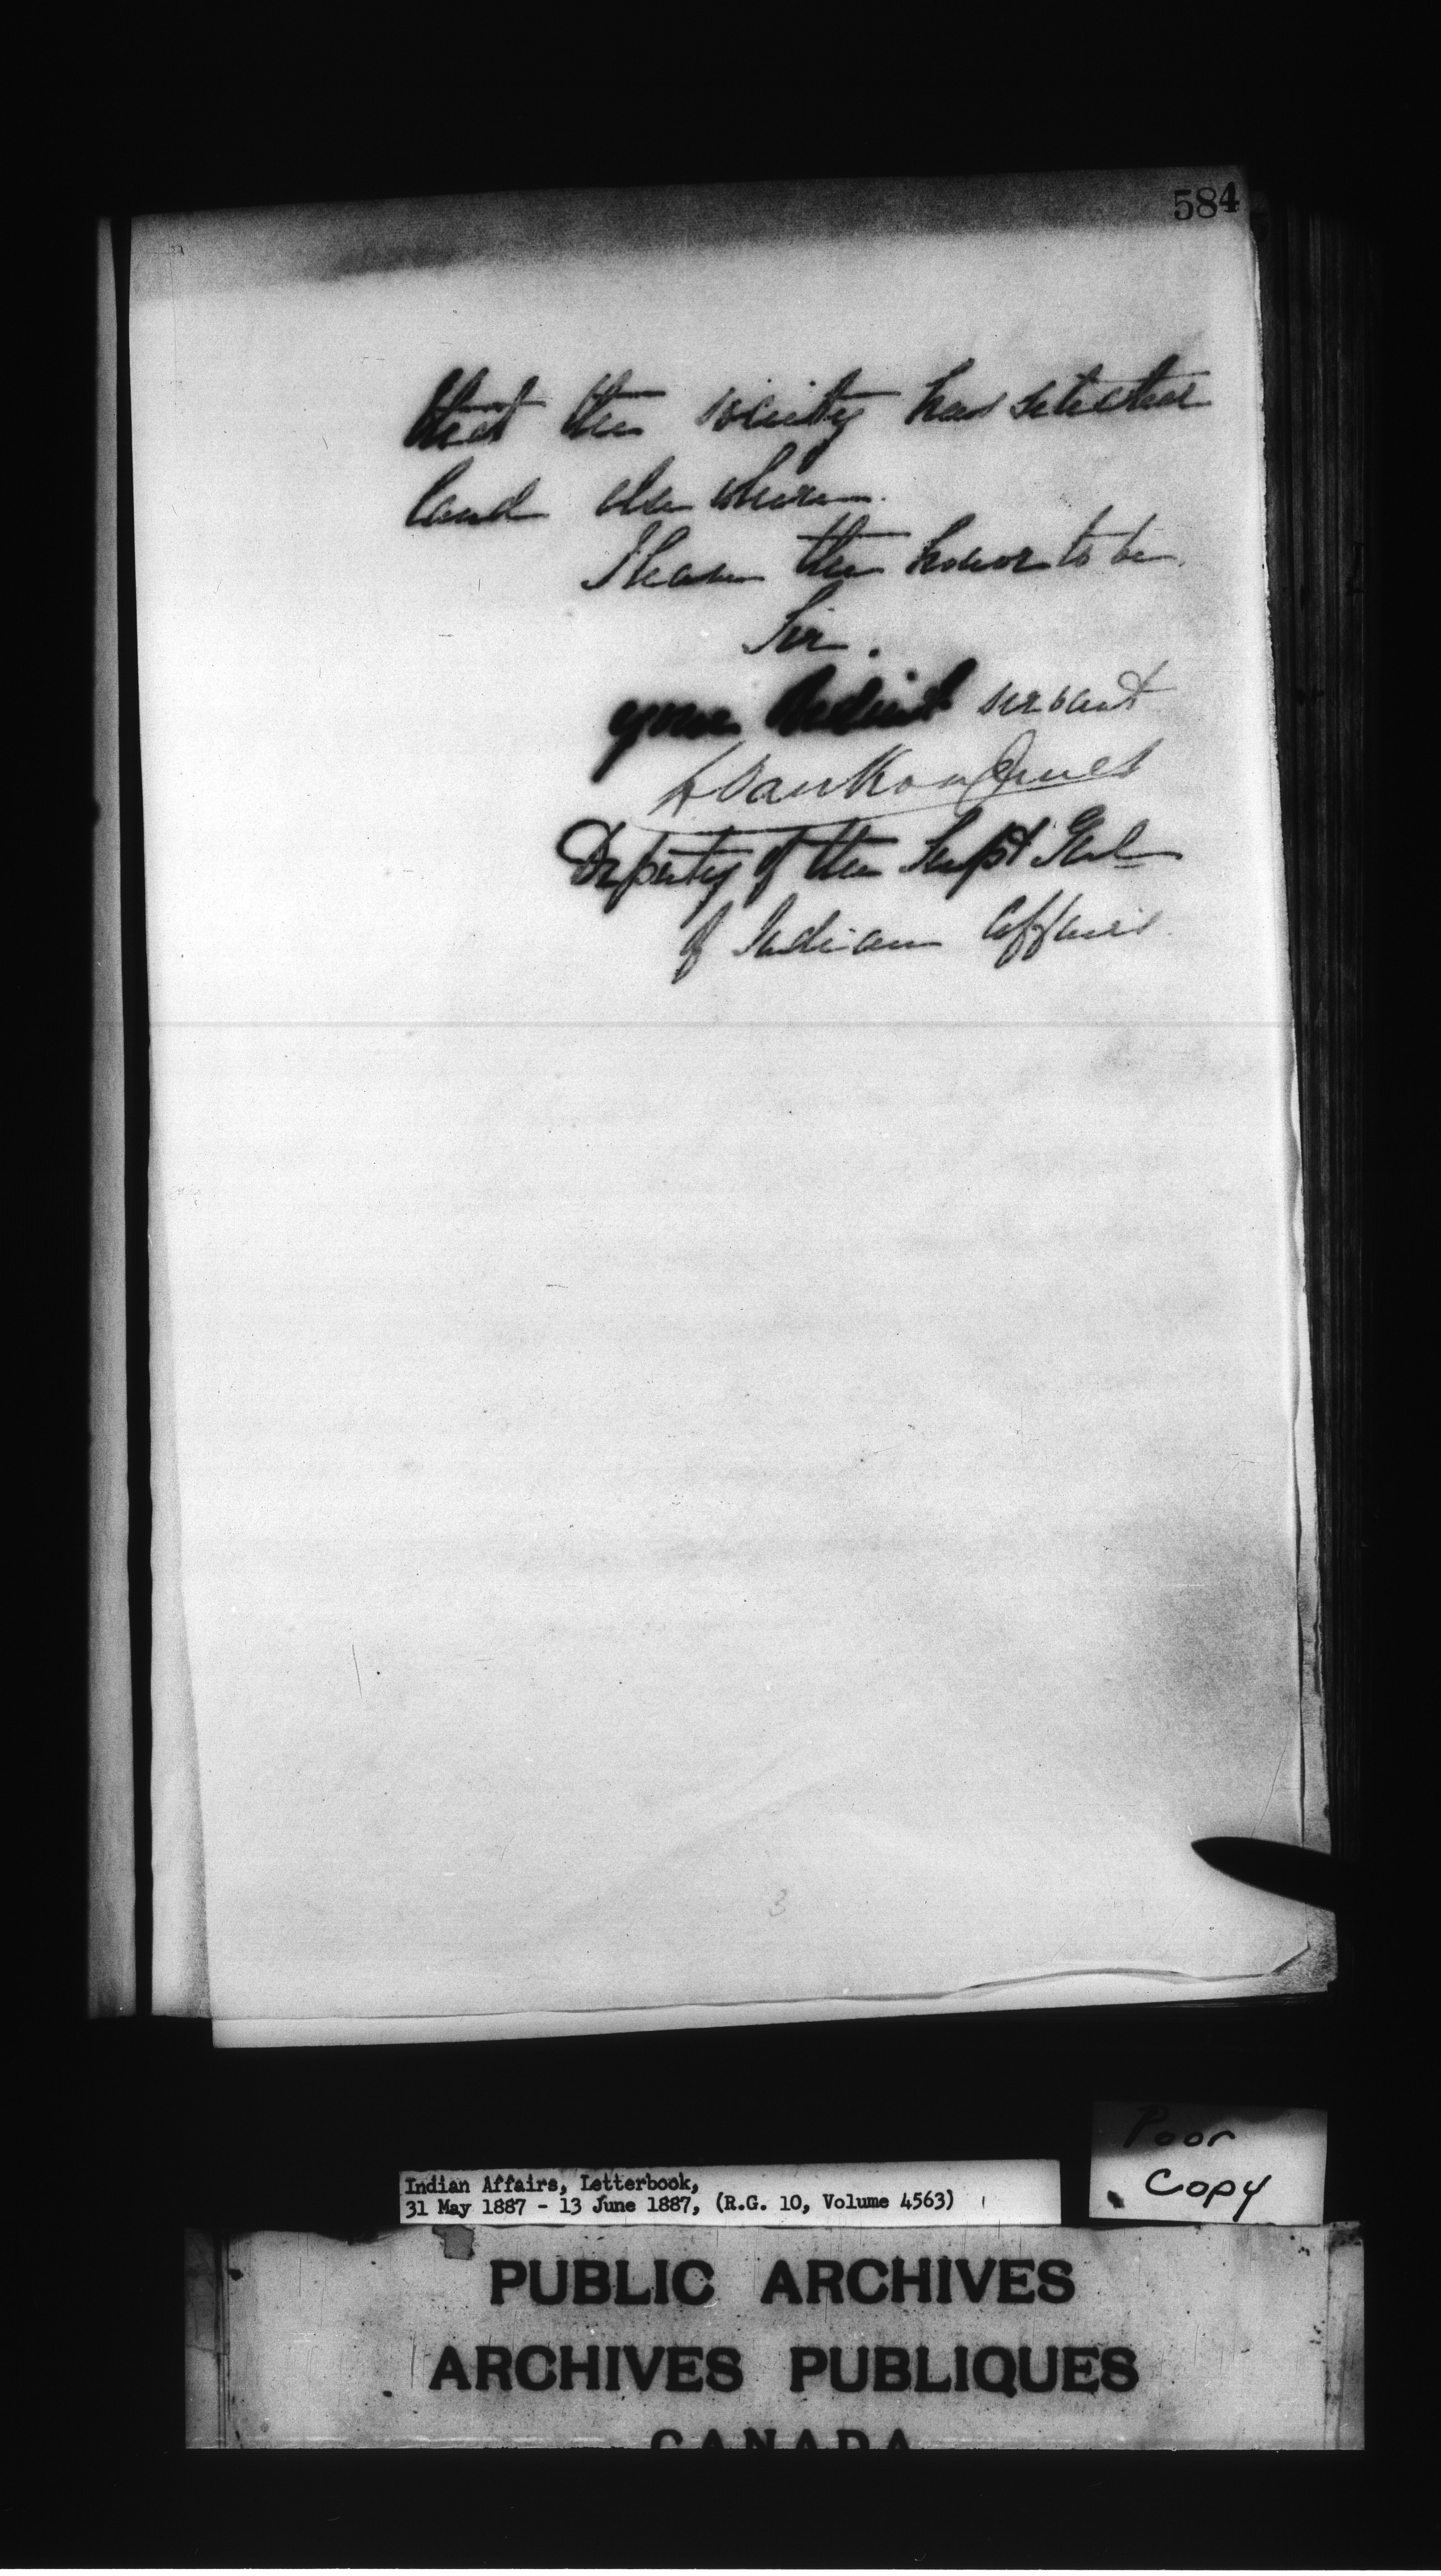 584
that the society has selected
land elsewhere.
I have the honor to be,
Sir.
your obedient servant
L Vankoughnet
Deputy of the Supt Genl
of Indian Affairs.
3
Poor
Copy
Indian Affairs, Letterbook,
31 May 1887 - 13 June 1887, (R.G. 10, Volume 4563)
PUBLIC ARCHIVES
ARCHIVES PUBLIQUES
CANADA